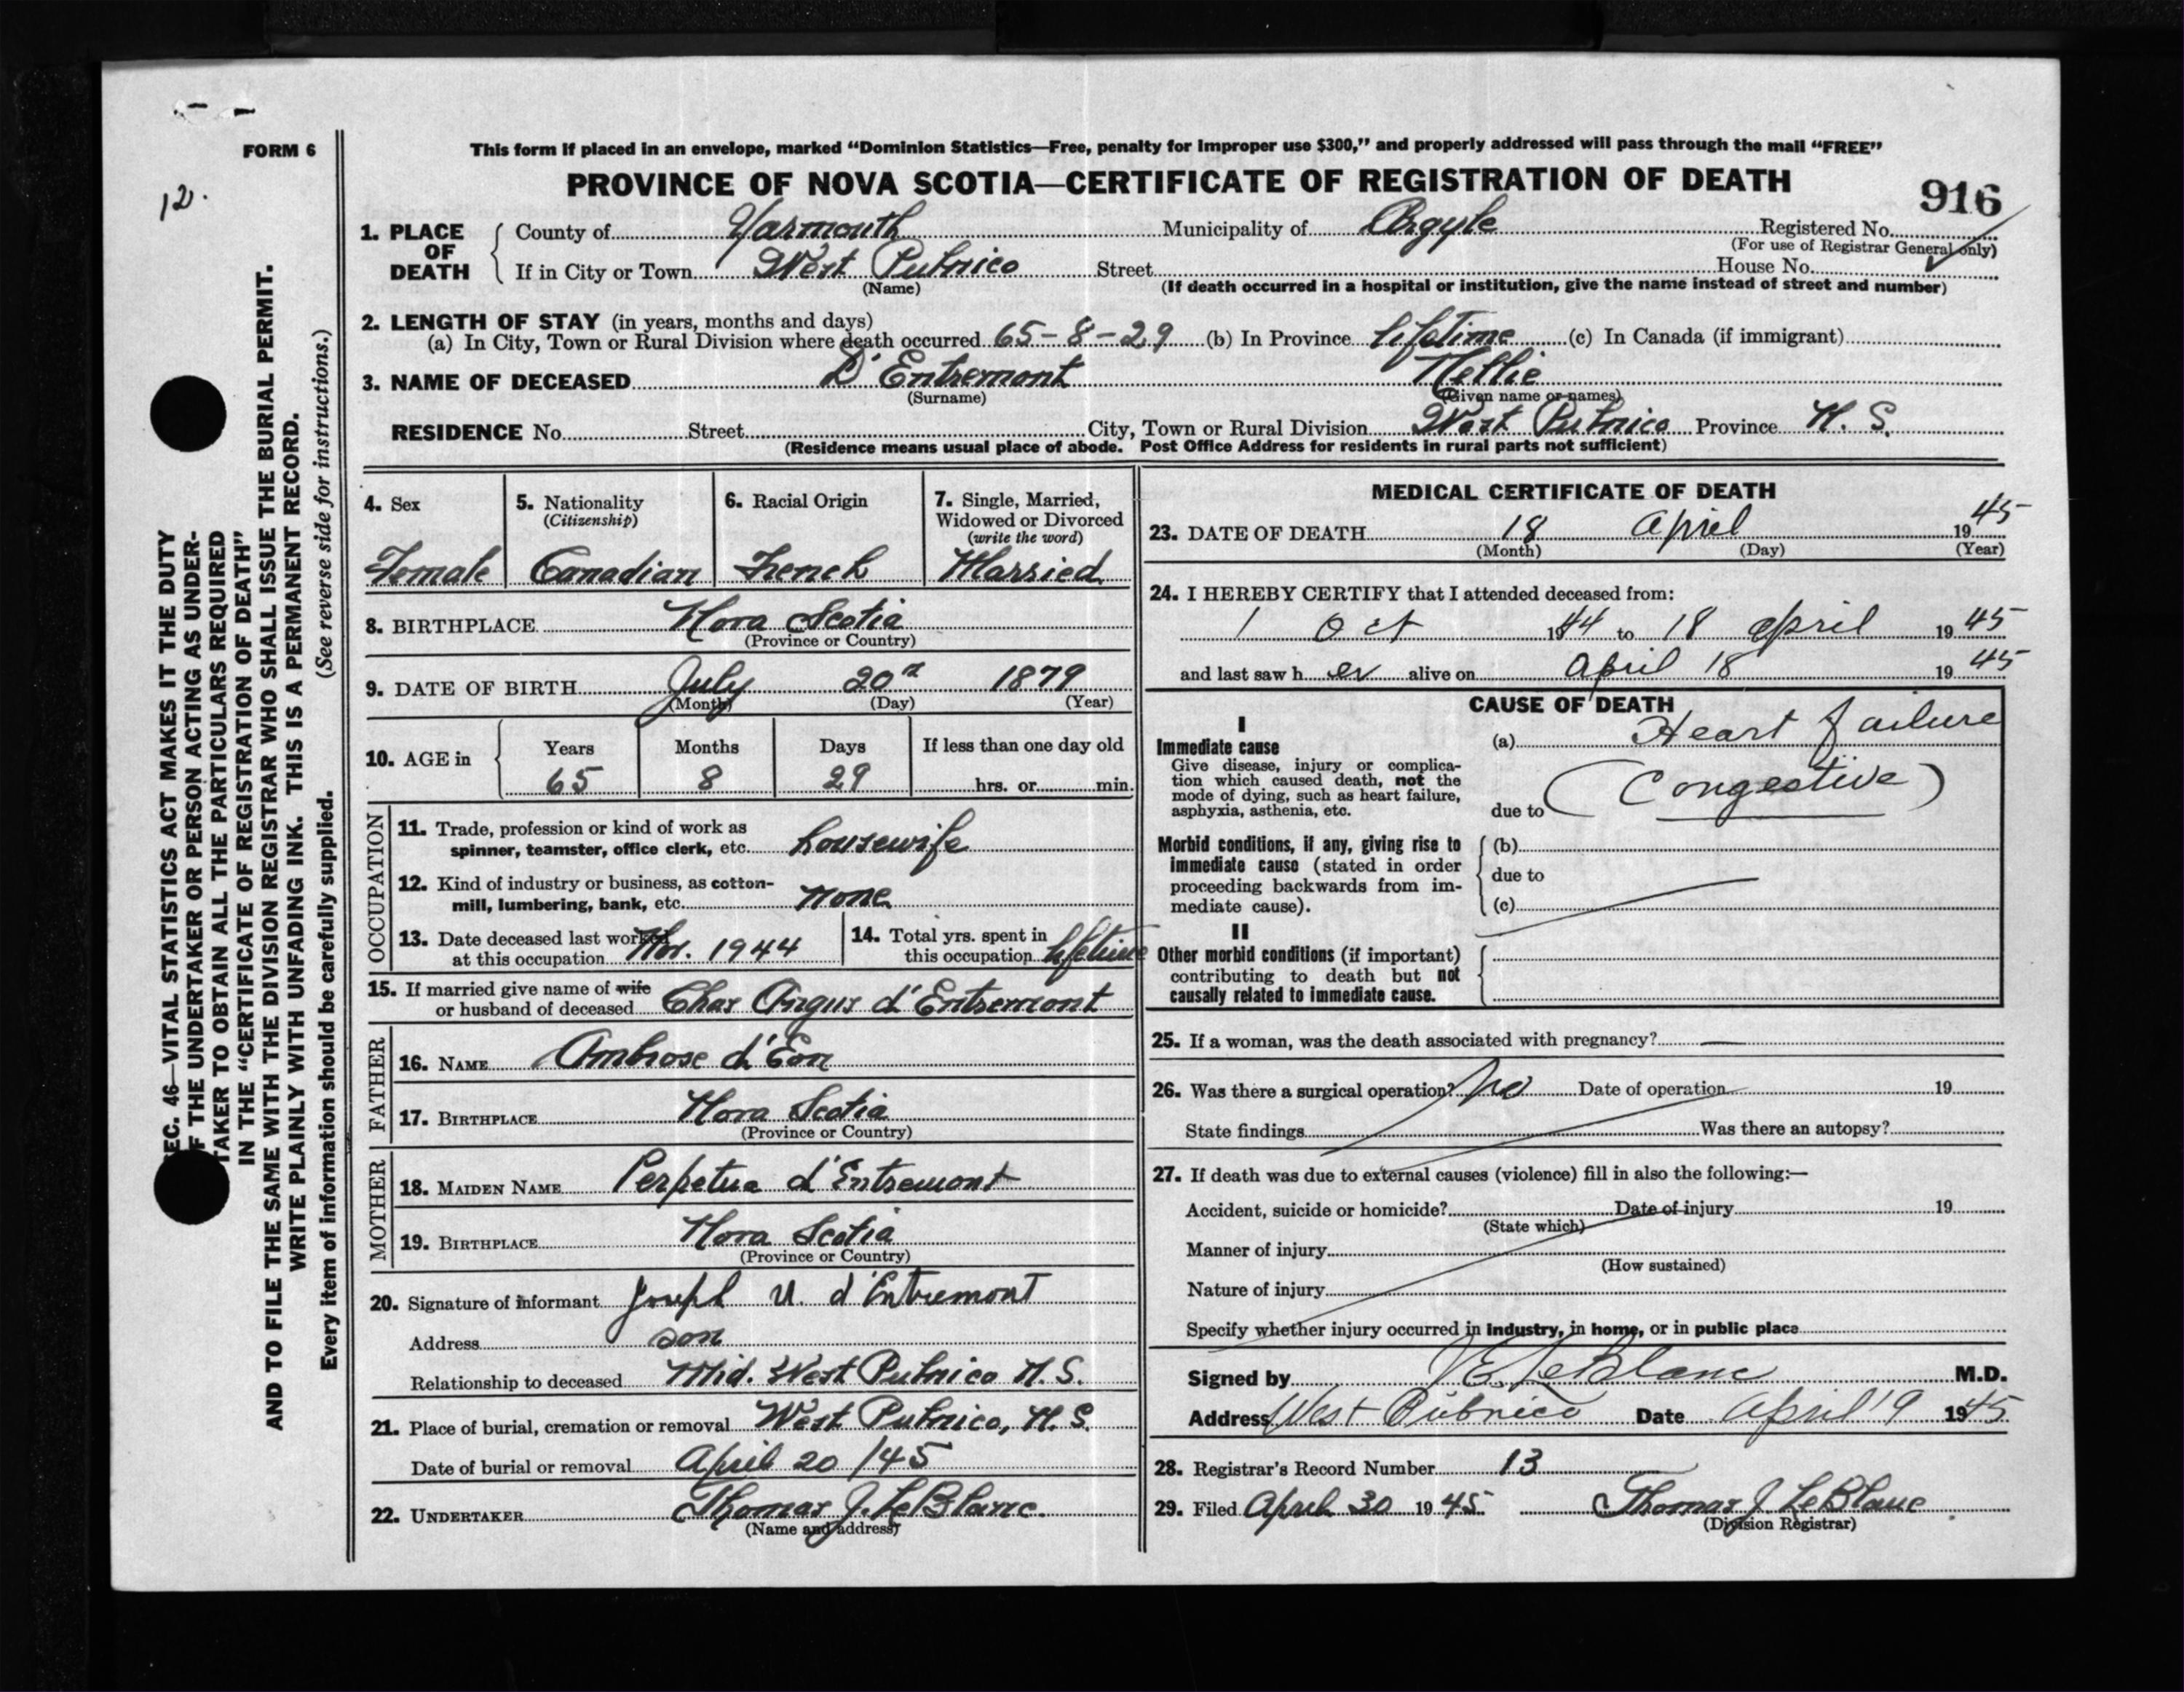 FORM 6
12.
This form if placed in an envelope, marked “Dominion Statistics—Free, penalty for improper use $300,” and properly addressed will pass through the mail “FREE”
PROVINCE OF NOVA SCOTIA—CERTIFICATE OF REGISTRATION OF DEATH
916
1. PLACE OF DEATH
County of Yarmouth Municipality of Argyle Registered No.
(For use of Registrar General only)
If in City or Town West Pubnico Street House No.
(Name) (If death occurred in a hospital or institution, give the name instead of street and number)
2. LENGTH OF STAY (in years, months and days)
(a) In City, Town or Rural Division where death occurred 65-8-29 (b) In Province lifetime (c) In Canada (if immigrant)
3. NAME OF DECEASED D'Entremont Nellie
(Surname) (Given name or names)
RESIDENCE No. Street City, Town or Rural Division West Pubnico Province N. S.
(Residence means usual place of abode. Post Office Address for residents in rural parts not sufficient)
4. Sex
Female
5. Nationality
(Citizenship)
Canadian
6. Racial Origin
French
7. Single, Married,
Widowed or Divorced
(write the word)
Married
8. BIRTHPLACE Nova Scotia
(Province or Country)
9. DATE OF BIRTH July 20th 1879
(Month) (Day) (Year)
10. AGE in
Years Months Days If less than one day old
65 8 29 hrs. or min.
OCCUPATION
11. Trade, profession or kind of work as
spinner, teamster, office clerk, etc. housewife
12. Kind of industry or business, as cotton-
mill, lumbering, bank, etc. none
13. Date deceased last worked
at this occupation Nov. 1944
14. Total yrs. spent in
this occupation lifetime
15. If married give name of wife
or husband of deceased Chas Angus d'Entremont
FATHER
16. NAME Ambrose d'Eon
17. BIRTHPLACE Nova Scotia
(Province or Country)
MOTHER
18. MAIDEN NAME Perpetua d'Entremont
19. BIRTHPLACE Nova Scotia
(Province or Country)
20. Signature of informant Joseph U. d'Entremont
Address son
Relationship to deceased Mid. West Pubnico N.S.
21. Place of burial, cremation or removal West Pubnico, N. S.
Date of burial or removal April 20/45
22. UNDERTAKER Thomas J. LeBlanc.
(Name and address)
MEDICAL CERTIFICATE OF DEATH
23. DATE OF DEATH 18 April 1945
(Month) (Day) (Year)
24. I HEREBY CERTIFY that I attended deceased from:
1 Oct 1944 to 18 April 1945
and last saw her alive on April 18 1945
CAUSE OF DEATH
I
Immediate cause
Give disease, injury or complica-
tion which caused death, not the
mode of dying, such as heart failure,
asphyxia, asthenia, etc.
(a) Heart failure
due to (Congestive)
Morbid conditions, if any, giving rise to
immediate cause (stated in order
proceeding backwards from im-
mediate cause).
(b)
due to
(c)
II
Other morbid conditions (if important)
contributing to death but not
causally related to immediate cause.
25. If a woman, was the death associated with pregnancy? —
26. Was there a surgical operation? No Date of operation 19
State findings Was there an autopsy?
27. If death was due to external causes (violence) fill in also the following:—
Accident, suicide or homicide? Date of injury 19
(State which)
Manner of injury
(How sustained)
Nature of injury
Specify whether injury occurred in industry, in home, or in public place
Signed by E. LeBlanc M.D.
Address West Pubnico Date April 19 1945
28. Registrar's Record Number 13
29. Filed April 30 1945 Thomas J. LeBlanc
(Division Registrar)
EC. 46—VITAL STATISTICS ACT MAKES IT THE DUTY
F THE UNDERTAKER OR PERSON ACTING AS UNDER-
TAKER TO OBTAIN ALL THE PARTICULARS REQUIRED
IN THE “CERTIFICATE OF REGISTRATION OF DEATH”
AND TO FILE THE SAME WITH THE DIVISION REGISTRAR WHO SHALL ISSUE THE BURIAL PERMIT.
WRITE PLAINLY WITH UNFADING INK. THIS IS A PERMANENT RECORD.
Every item of information should be carefully supplied. (See reverse side for instructions.)